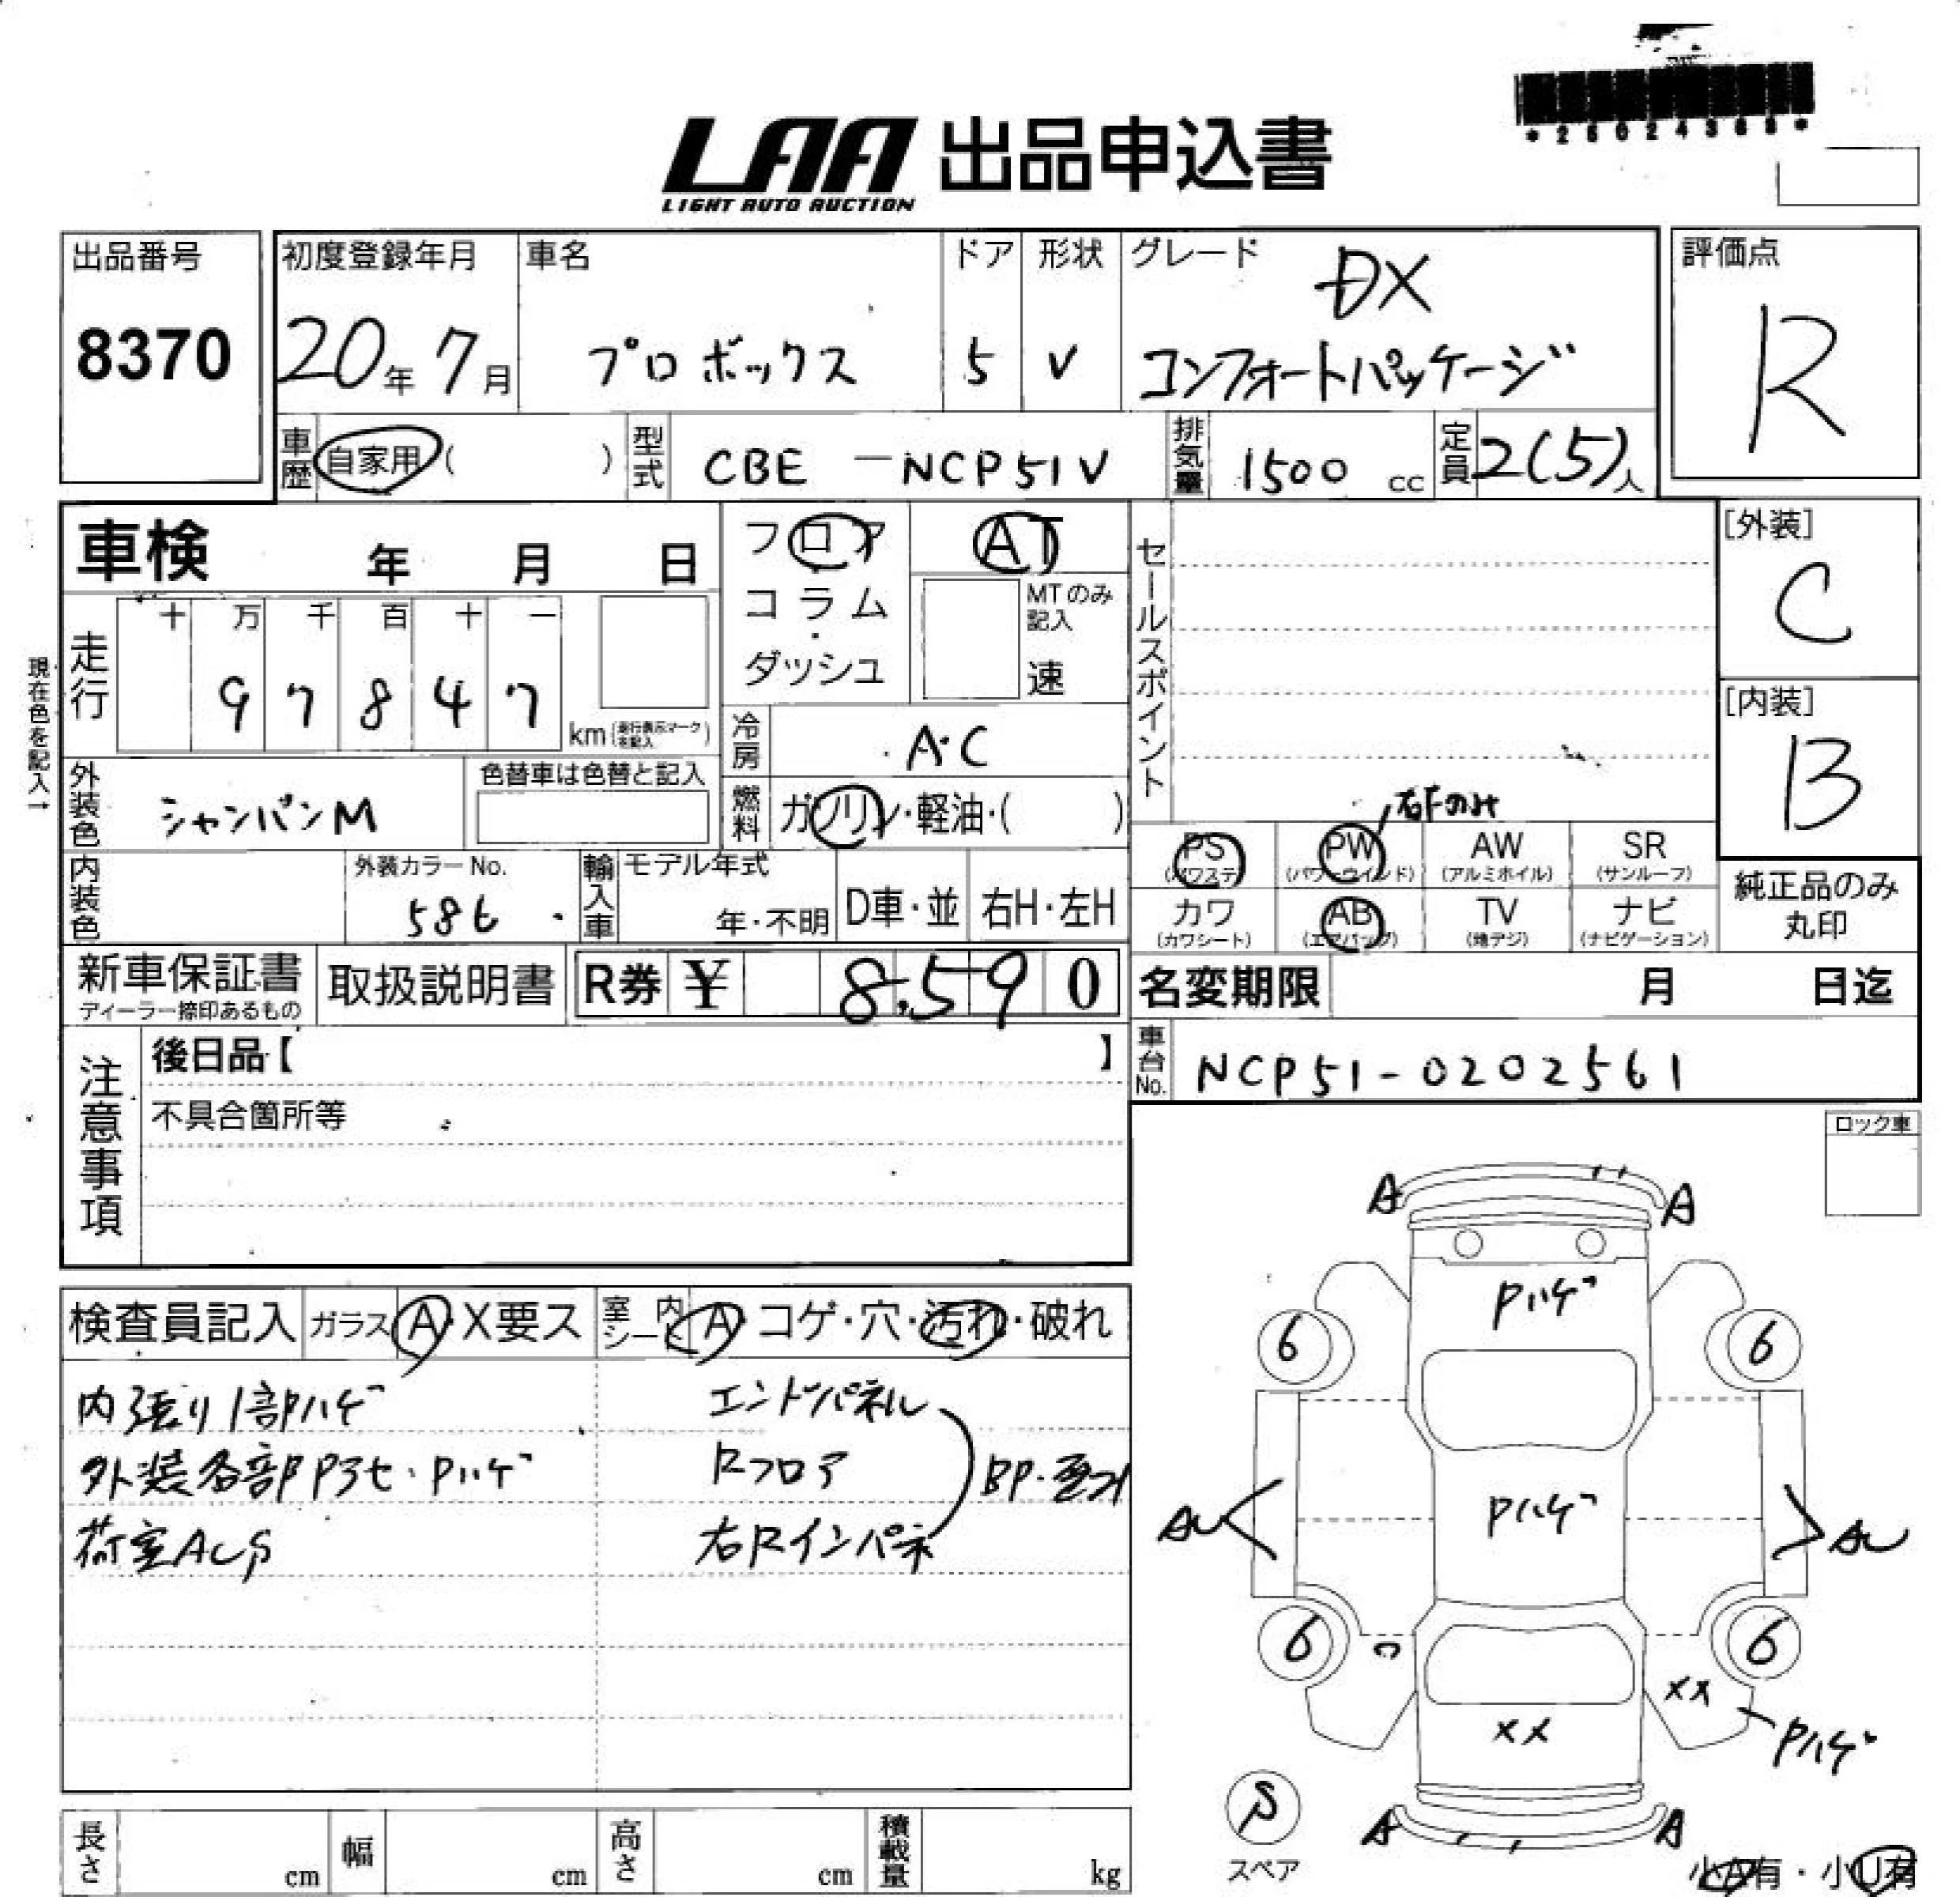 LAA 出品申込書
LIGHT AUTO AUCTION
出品番号
8370
初度登録年月
20年 7月
車名
プロボックス
ドア
5
形状
V
グレード
DX
コンフォートパッケージ
評価点
R
車歴 自家用 ( )
型式 CBE - NCP51V
排気量 1500 cc
定員 2(5)人
車検 年 月 日
フロア
コラム
ダッシュ
AT
MTのみ記入
速
セールスポイント
[外装]
C
[内装]
B
現在色を記入→
走行
十 万 千 百 十 一
9 7 8 4 7
km (走行表示マークを記入)
冷房 A・C
燃料 ガソリン・軽油・( )
外装色 シャンパンM
色替車は色替と記入
右Fのみ
PS (パワステ)
PW (パワーウインド)
AW (アルミホイル)
SR (サンルーフ)
カワ (カワシート)
AB (エアバッグ)
TV (地デジ)
ナビ (ナビゲーション)
純正品のみ
丸印
内装色
外装カラーNo.
586
輸入車
モデル年式
年・不明
D車・並
右H・左H
新車保証書
ディーラー捺印あるもの
取扱説明書
R券 ¥ 8,590
名変期限 月 日迄
車台No. NCP51-0202561
注意事項
後日品【 】
不具合箇所等
ロック車
検査員記入
ガラス A・X要ス
室内シート A・コゲ・穴・汚れ・破れ
内張り1部ハゲ
外装各部Pアセ・Pハゲ
荷室AUS
エンドパネル
Rフロア
右Rインパネ
BP・歪み
A A
Pハゲ
6 6
Pハゲ
AU AU
6 6
C
XX
XX
Pハゲ
S
スペア
A A
小A有・小U有
長さ cm
幅 cm
高さ cm
積載量 kg